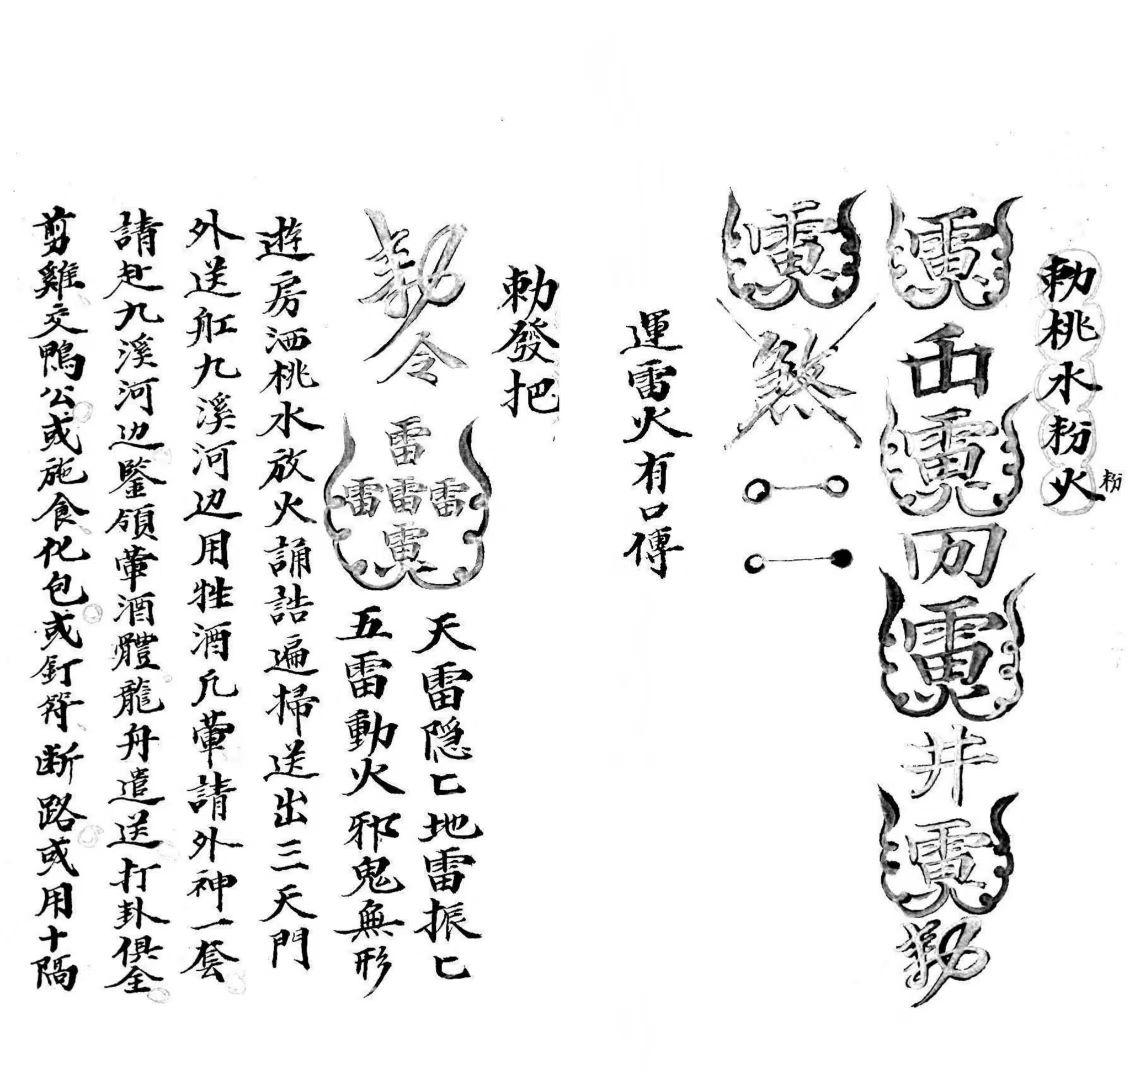 勅桃水粉火
粉
運雷火有口傳
勅發把
勅令
雷
雷雷雷
天雷隐匕地雷振匕
五雷動火邪鬼無形
遊房洒桃水放火誦誥遍掃送出三天門
外送舡九溪河边用牲酒凢葷請外神一套
請赴九溪河边鑒領葷酒體龍舟遣送打卦俱全
剪雞交鴨公或施食化包或釘符断路或用十隔